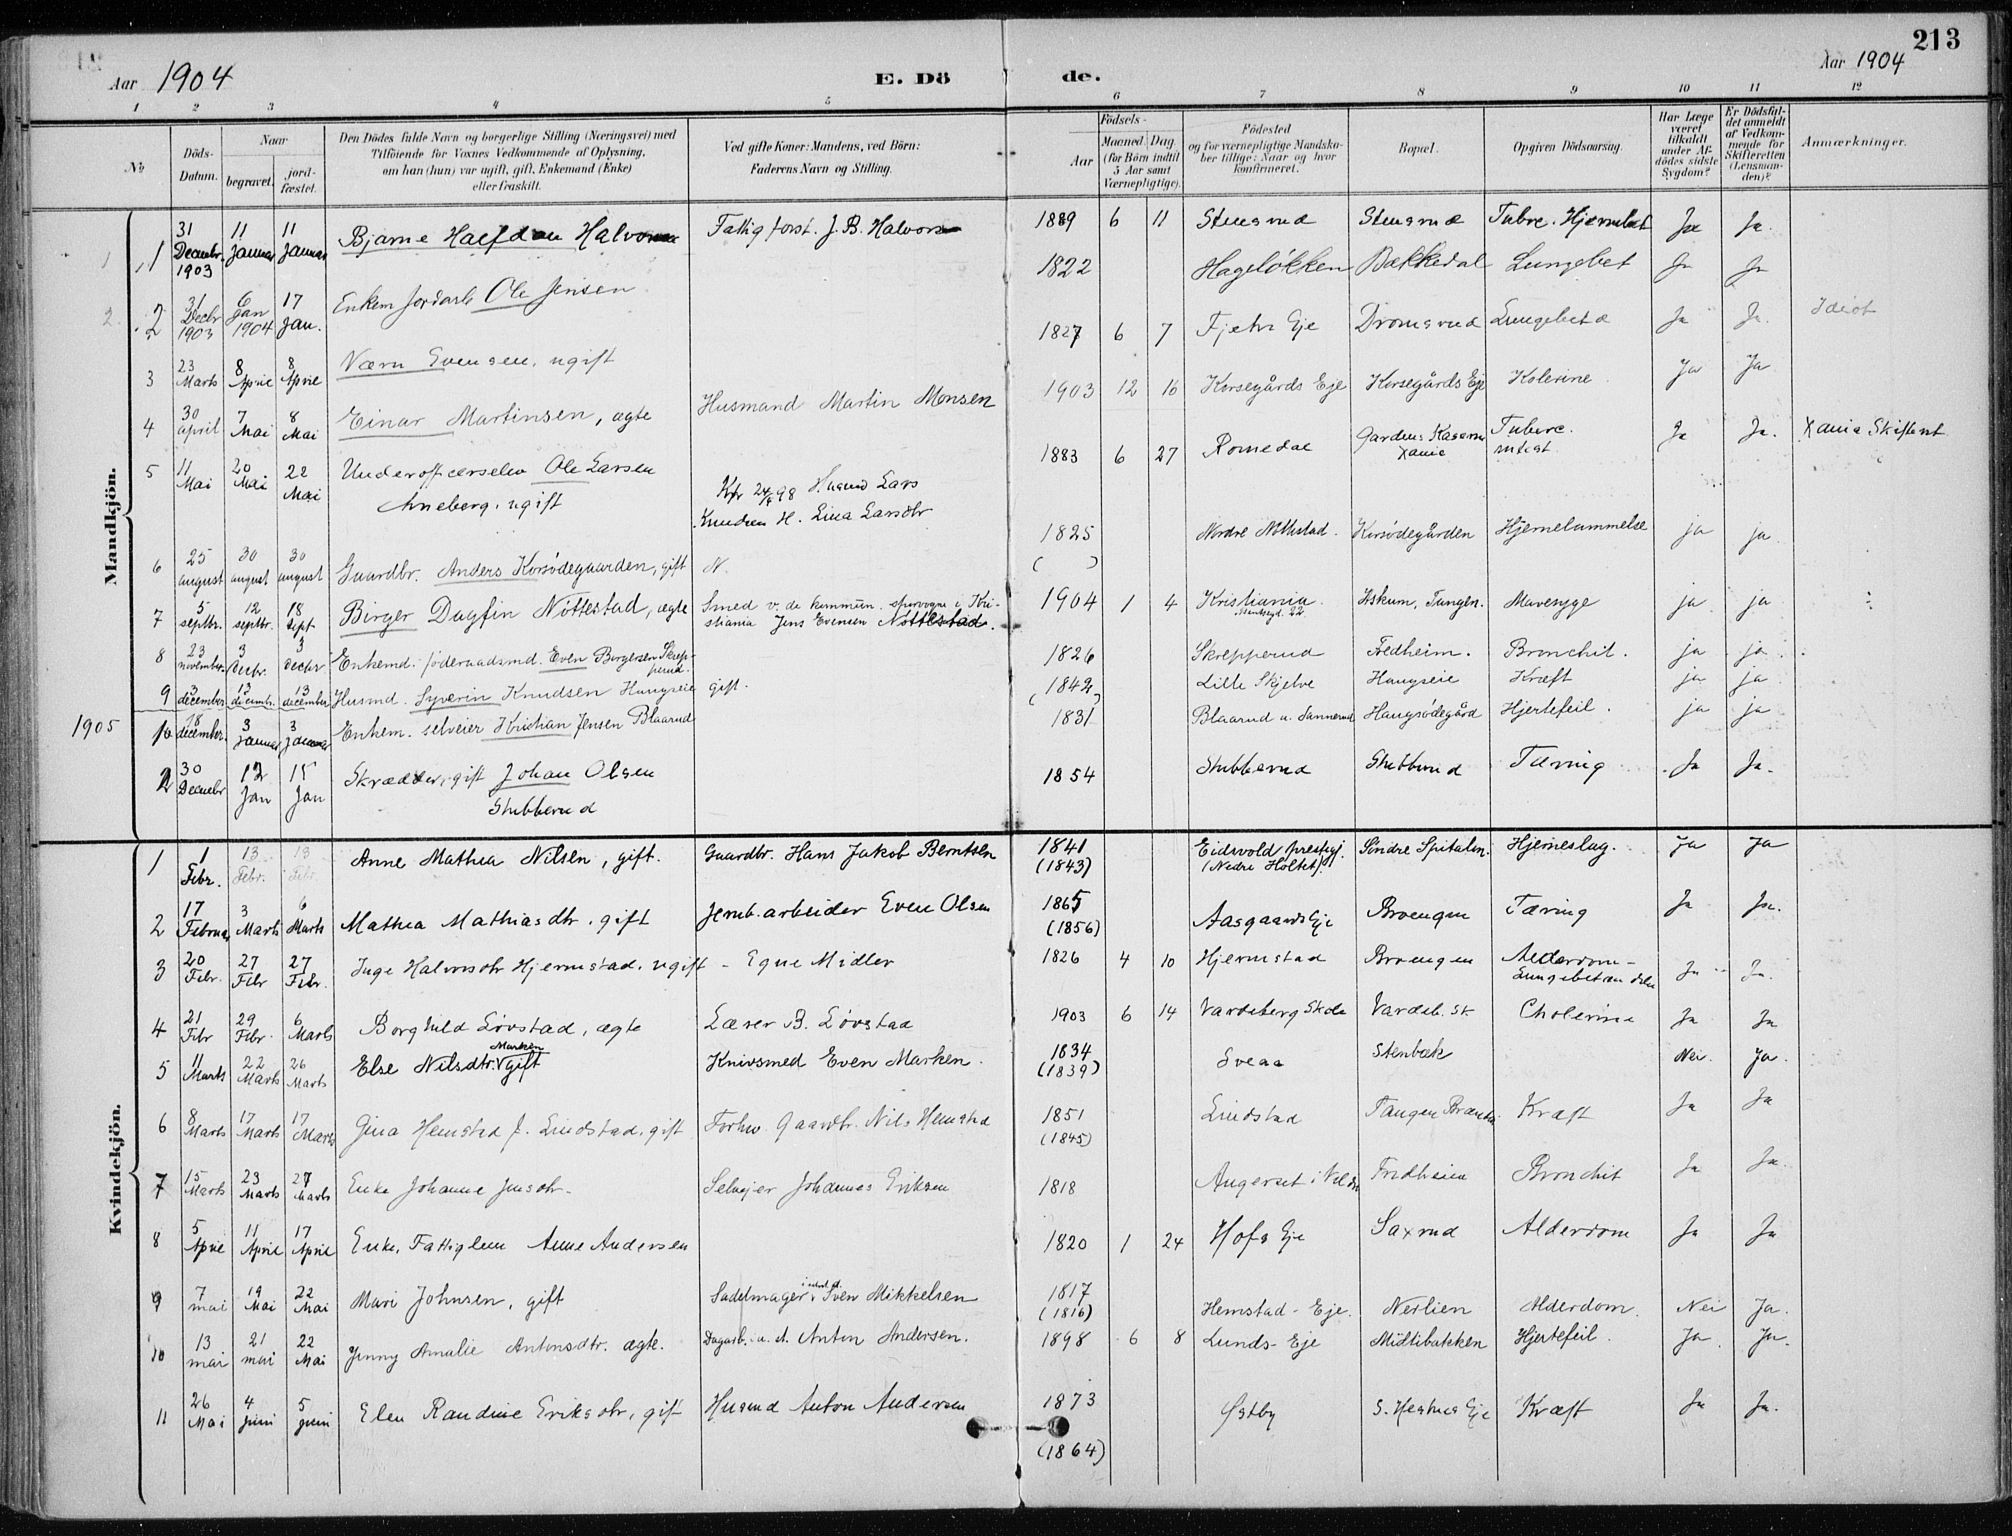 213
Aar 1904
E. Dö de.
Aar 1904
1 2 3 4 5 6 7 8 9 10 11 12
No
Döds-Datum.
Naar
begravet.
jord-fæstet.
Den Dödes fulde Navn og borgerlige Stilling (Næringsvei) med
Tilföiende for Voxnes Vedkommende af Oplysning,
om han (hun) var ugift, gift, Enkemand (Enke)
eller fraskilt.
Ved gifte Koner: Mandens, ved Börn:
Faderens Navn og Stilling.
Födsels-
Aar
Maaned Dag
(for Börn indtil
5 Aar samt
Værnepligtige).
Födested
og for værnepligtige Mandska-
ber tillige: Naar og hvor
konfirmeret.
Bopæl.
Opgiven Dödsaarsag.
Har Læge
været
tilkaldt
under Af-
dödes sidste
Sygdom?
Er Dödsfal-
det anmeldt
af Vedkom-
mende for
Skifteretten
(Lensman-
den)?
Anmærkninger.
Mandkjön.
1 31 Decembr. 1903 11 Januar 11 Januar Bjarne Halfdan Halvorsen Fattigforst. J. B. Halvorsen 1889 6 11 Stensrud Stensrud Tuberc. Ja Ja.
2 31 Decbr 1903 6 Jan 1904 17 Jan. Enkem. Ole Jensen 1822 Hageløkken Bakkedal Lungebet Ja Ja
3 23 Marts 8 April 8 April Nærn Evensen, ugift 1827 6 7 Fjetre Eje Dromsrud Lungebet Ja Ja. Idiot
4 30 April 7 Mai 8 Mai Einar Martinsen, ægte Husmand Martin Monsen 1903 12 16 Korsegårds Eje Korsegårds Eje Kolerine Ja Ja
5 11 Mai 20 Mai 22 Mai Underofficerselev Ole Larsen 1883 6 27 Romedal Gardens Kaserne Xania Tuberc. Ja Ja. Xania Skifteret
Arneberg. ugift Husmd Lars
Knudsen H. Lina Larsdtr
6 25 august 30 august 30 august Gaardbr. Anders Korsödegaarden, gift N. 1825 ( ) Nordre Nöttestad. Korsödegården Hjernelammelse ja ja.
7 5 septbr. 12 septbr. 18 sept. Birger Dagfin Nöttestad, ægte Smed v. de kommun. sporvogne i Kri- 1904 1 4 Kristiania. Askum, Tangen. Mavesyge ja ja
stiania Jens Evensen Nöttestad.
8 23 november. 3 decbr. 3 decbr. Enkemd. föderaadsmd. Even Borgersen Skrep-perud. 1826 Skrepperud Fredheim. Bronchit. ja ja
9 3 december 13 decembr. 13 december Husmd. Syverin Knudsen Haugseie gift. 1842 ( ) Lille Skjelve Haugseie Kræft ja ja
1905 1 18 december. 3 Januar 3 Januar Enkem. selveier Kristian Jensen Blaarud 1831 Blaarud u. Sannerud Haugsödegård Hjertefeil. ja ja
2 30 Decembr 12 Jan 15 Jan Skrædder, gift Johan Olsen 1854 Stubberud Stubberud Tæring Ja Ja.
Stubberud
Kvindekjön.
1 1 Febr. 13 Febr. 13 Febr. Anne Mathea Nilsen, gift. Gaardbr. Hans Jakob Berntsen 1841 (1843) Eidsvold prestgj. (Nedre Holtet). Söndre Spitalen. Hjerneslag. Ja Ja
2 17 Februar 3 Marts 6 Marts Mathea Mathiasdtr. gift Jernb. arbeider Even Olsen 1865 (1856) Aasgaards Eje Broengen Tæring Ja Ja.
3 20 Febr. 27 Febr 27 Febr. Inge Halvorsdtr Hjermstad. ugift - Egne Midler 1826 4 10 Hjermstad Broengen Alderdom- Ja Ja.
4 21 Febr 29 Febr. 6 Marts Borghild Lövstad, ægte Lærer B. Lövstad 1903 6 14 Vardeberg Skole Vardeb. Sk Cholerine Ja Ja
5 11 Marts 22 Marts 26 Marts Else Nilsdtr. Marken gift Knivsmed Even Marken. 1834 (1839) Sveaa Stenbæk Nei. Ja.
6 8 Marts 17 Marts 17 Marts Gina Hemstad f. Lindstad, gift Forhv. Gaardbr. Nils Hemstad 1851 (1845) Lindstad Tangen Kræft Ja Ja
7 15 Marts 23 Marts 27 Marts Enke Johanne Jensdtr. Selvejer Johannes Eriksen 1818 Angerset i Fredheim Bronchit Ja Ja
8 5 April 11 April 17 April Enke. Fattiglem Anne Andersen 1820 1 24 Hofs Eje Saxrud Alderdom Ja Ja
9 7 mai 19 Mai 22 Mai Mari Johnsen, gift Sadelmager Sven Mikkelsen 1817 (1816) Hemstad-Eje. Nerlien Alderdom. Nei Ja.
10 13 mai 21 mai 22 Mai Jenny Amalie Antonsdtr. ægte. Dagarb. Anton Andersen. 1898 6 8 Lunds-Eje Midtibakken Hjertefeil. Ja. Ja.
11 26 Mai 4 Juni 5 Juni Elen Randine Eriksdtr, gift Husmd Anton Andersen 1873 (1864) Østby S. Hestnes Eje Kræft Ja Ja.